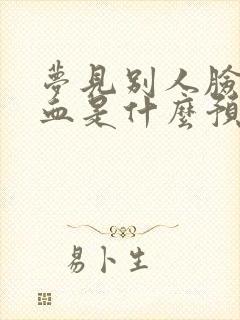 夢見别人臉
血是什麼預
易卜生